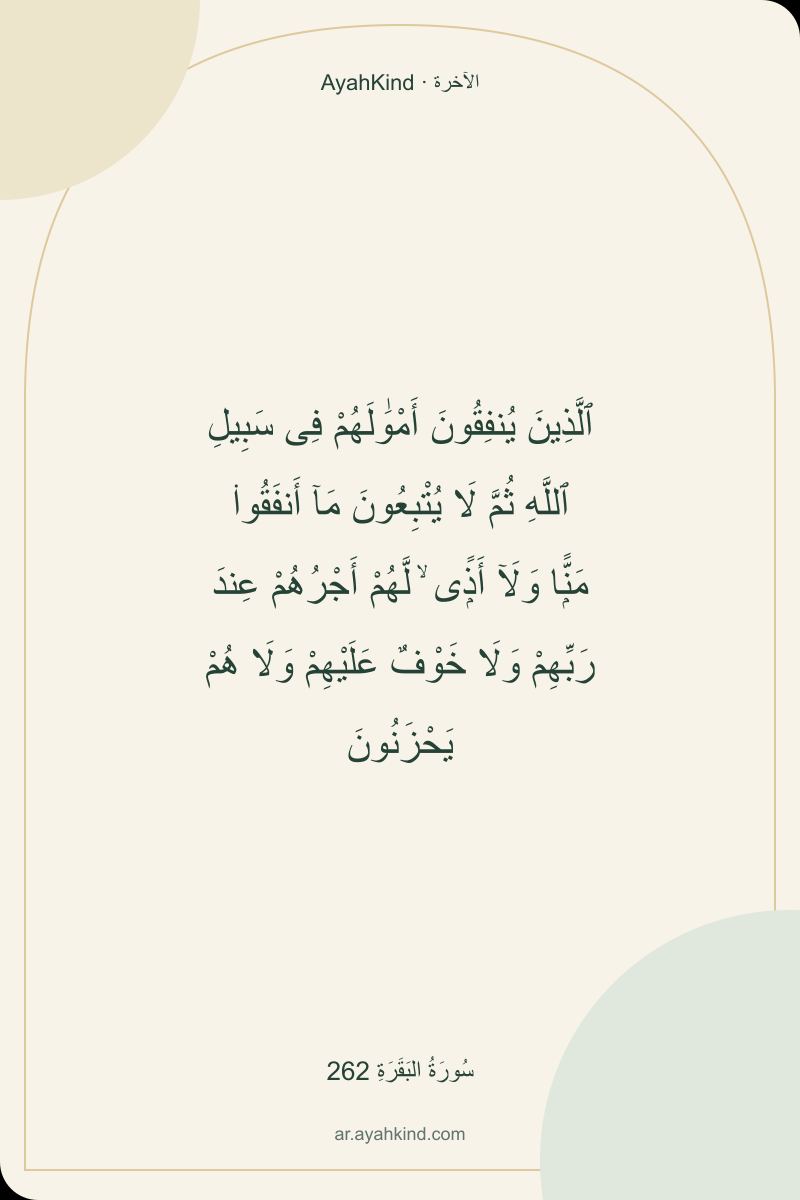 AyahKind · الآخرة
ٱلَّذِينَ يُنفِقُونَ أَمْوَٰلَهُمْ فِى سَبِيلِ
ٱللَّهِ ثُمَّ لَا يُتْبِعُونَ مَآ أَنفَقُوا۟
مَنًّۭا وَلَآ أَذًۭى ۙ لَّهُمْ أَجْرُهُمْ عِندَ
رَبِّهِمْ وَلَا خَوْفٌ عَلَيْهِمْ وَلَا هُمْ
يَحْزَنُونَ
سُورَةُ البَقَرَةِ 262
ar.ayahkind.com